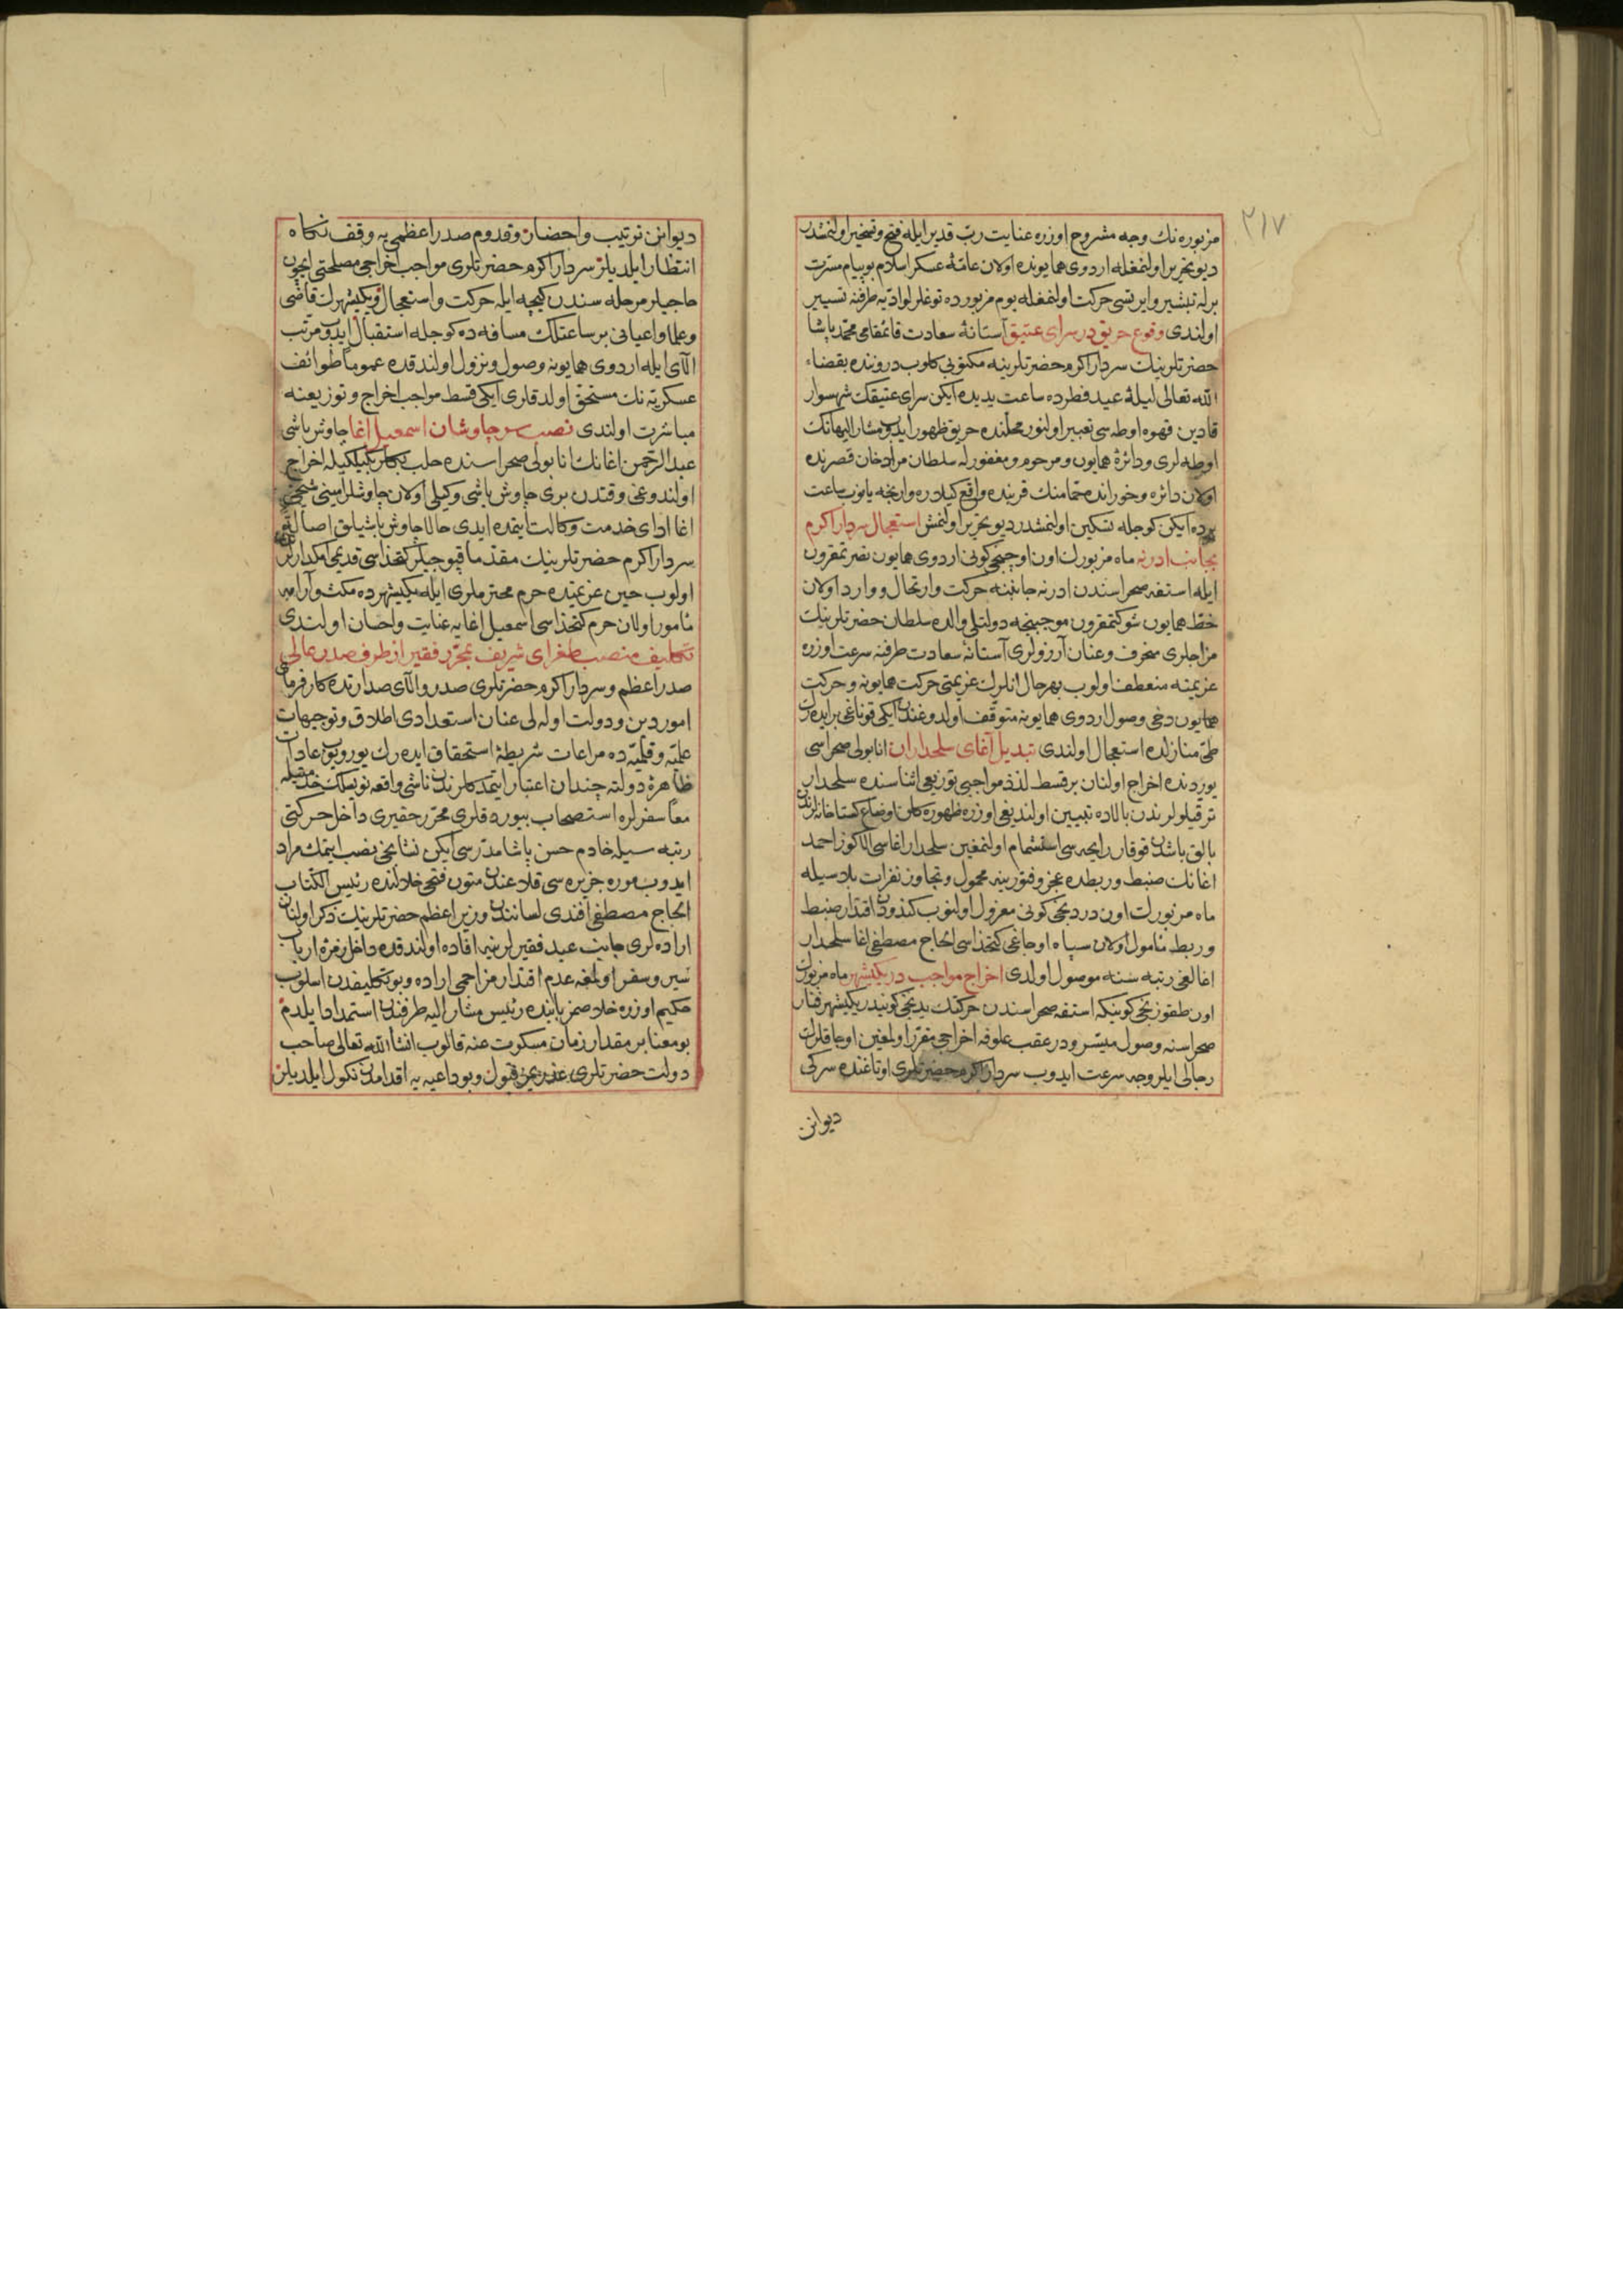 ٢١٧
مزبوره نك وجه مشروح اوزره عنايت رب قدير ايله فتح وتسخير اولنمشدر
ديو تحرير اولنمغله اردوى همايونده اولان عامۀ عسكر اسلام بو پيام مسرت
برله تبشير وايرتسى حركت اولنمغله يوم مزبورده توغلر لواديه طرفنه تسيير
اولندى وقوع حريق در سراى عتيق آستانۀ سعادت قائمقامى محمد پاشا
حضرتلرينك سردار اكرم حضرتلرينه مكتوبى كلوب دروننده بقضاء
الله تعالى ليلۀ عيد فطرده ساعت يديده ايكن سراى عتيقك شهسوار
قادين قهوه اوطه سى تعبير اولنور محلنده حريق ظهور ايدوب مشار اليهانك
اوطه لرى ودائرۀ همايون ومرحوم ومغفور له سلطان مراد خان قصرنده
اولان دائره وخوراندە حمامنك قربنده واقع كيلارە وارنجه يانوب ساعت
برده ايكن كوجله تسكين اولنمشدر ديو تحرير اولنمش استعجال سردار اكرم
بجانب ادرنه ماه مزبورك اون اوچنجى كونى اردوى همايون نصرتمقرون
ايله استفه صحراسندن ادرنه جانبنه حركت وارتحال و وارد اولان
خط همايون شوكتمقرون موجبنجه دولتلى والده سلطان حضرتلرينك
مزاجلرى منحرف وعنان آرزولرى آستانۀ سعادت طرفنه سرعت اوزره
عزيمته منعطف اولوب بهرحال انلرك عزيمتى حركت همايونه وحركت
همايون دخى وصول اردوى همايونه متوقف اولدوغندن ايكى قوناغى بر ايدەرك
طى منازلده استعجال اولندى تبديل آغاى سلحداران انابولى صحراسى
يوردنده اخراج اولنان بر قسط لذذ مواجبى توزيعى اثناسنده سلحدار
ترقيلولرندن بالاده تبيين اولنديغى اوزره ظهوره كلان اوضاع كستاخانه لرندن
بالق باشدن قوقار رايحه سى استشمام اولنمغين سلحدار اغاسى الاكوز احمد
اغانك ضبط وربطده عجز وفتورينه محمول وتجاوز نفرات بلاسيله
ماه مزبورك اون دردنجى كونى معزول اولنوب كندودن اقتدار ضبط
وربط مأمول اولان سپاه اوجاغى كتخداسى الحاج مصطفى اغا سلحدار
اغالغى رتبه سنه موصول اولدى اخراج مواجب در يكيشهر ماه مزبورك
اون طقوزنجى كونيكه استفه صحراسندن حركتك يدنجى كونيدر يكيشهر فنار
صحراسنه وصول ميسر ودر عقب علوفه اخراجى مقرر اولمغين اوجاقلرك
رجالى ايلرو جه سرعت ايدوب سردار اكرم حضرتلرى اوتاغنده سركى
ديوانن
ديوانن ترتيب واحضار وقدوم صدر اعظمى يه وقف نكاه
انتظار ايلديلر سردار اكرم حضرتلرى مواجب اخراجى مصلحتى ايچون
حاجيلر مرحله سندن كيجه ايله حركت واستعجال ويكيشهرك قاضى
وعلما واعيانى بر ساعتلك مسافه ده كوجله استقبال ايدوب مرتب
الاى ايله اردوى همايونه وصول ونزول اولندقده عموما طوائف
عسكريه نك مستحق اولدقلرى ايكى قسط مواجب اخراج وتوزيعنه
مباشرت اولندى نصب سرچاوشان اسمعيل اغا چاوش باشى
عبد الرحمن اغانك انابولى صحراسنده حلب بكلربكيلكيله اخراج
اولندوغى وقتدن برى چاوش باشى وكيلى اولان چاوشلر امينى شيخى
اغا اداى خدمت وكالت ايتمده ايدى حالا چاوش باشيلق اصالة
سردار اكرم حضرتلرينك مقدما قپوجيلر كتخداسى قديمى امكدارلرى
اولوب حين عزيمتده حرم محترملرى ايله يكيشهرده مكث وآرامه
مأمور اولان حرم كتخداسى اسمعيل اغايه عنايت واحسان اولندى
تكليف منصب طغراى شريف بمحرر فقير از طرف صدر عالى
صدر اعظم وسردار اكرم حضرتلرى صدر والاى صدارتده كارفرماى
امور دين ودولت اوله لى عنان استعدادى اطلاق وتوجيهات
علميه وقلميه ده مراعات شريطۀ استحقاق ايده رك يوريوب عادات
ظاهرۀ دولته چندان اعتبار ايتمدكلرندن ناشى واقعه نويسلك خدمتيله
معا سفرلره استصحاب بيوردقلرى محرر حقيرى داخل حركتى
رتبه سيله خادم حسن پاشا مدرسى ايكن نشانجى نصب ايتمك مراد
ايدوب موره جزيره سى قلاعندن متون فتحى خلالنده رئيس الكتاب
الحاج مصطفى افندى لسانندن وزير اعظم حضرتلرينك ذكر اولنان
اراده لرى جانب عبد فقيرلرينه افاده اولندقده داخل زمرۀ ارباب
سير وسفر اولمغه عدم اقتدار مزاجمى اراده وبو تكليفدن اسلوب
حكيم اوزره خلاصم بابنده رئيس مشار اليه طرفندن استمداد ايلدم
بو معنا بر مقدار زمان مسكوت عنه قالوب انشأ الله تعالى صاحب
دولت حضرتلرى عذريمى قبول وبو داعيه يه اقدامدن نكول ايلديلر